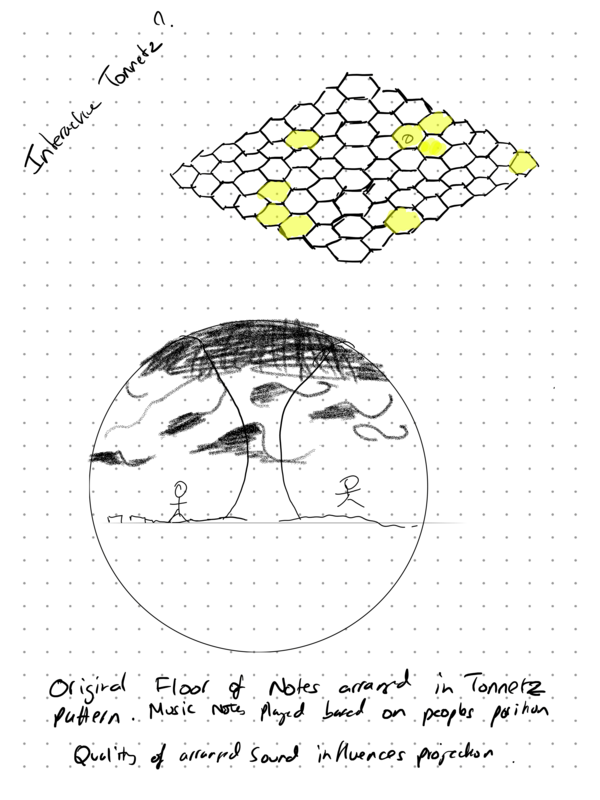 Interactive Tonnetz?
Original Floor of Notes arranged in Tonnetz
pattern. Music Notes Played based on peoples position
Quality of arranged Sound influences projection.